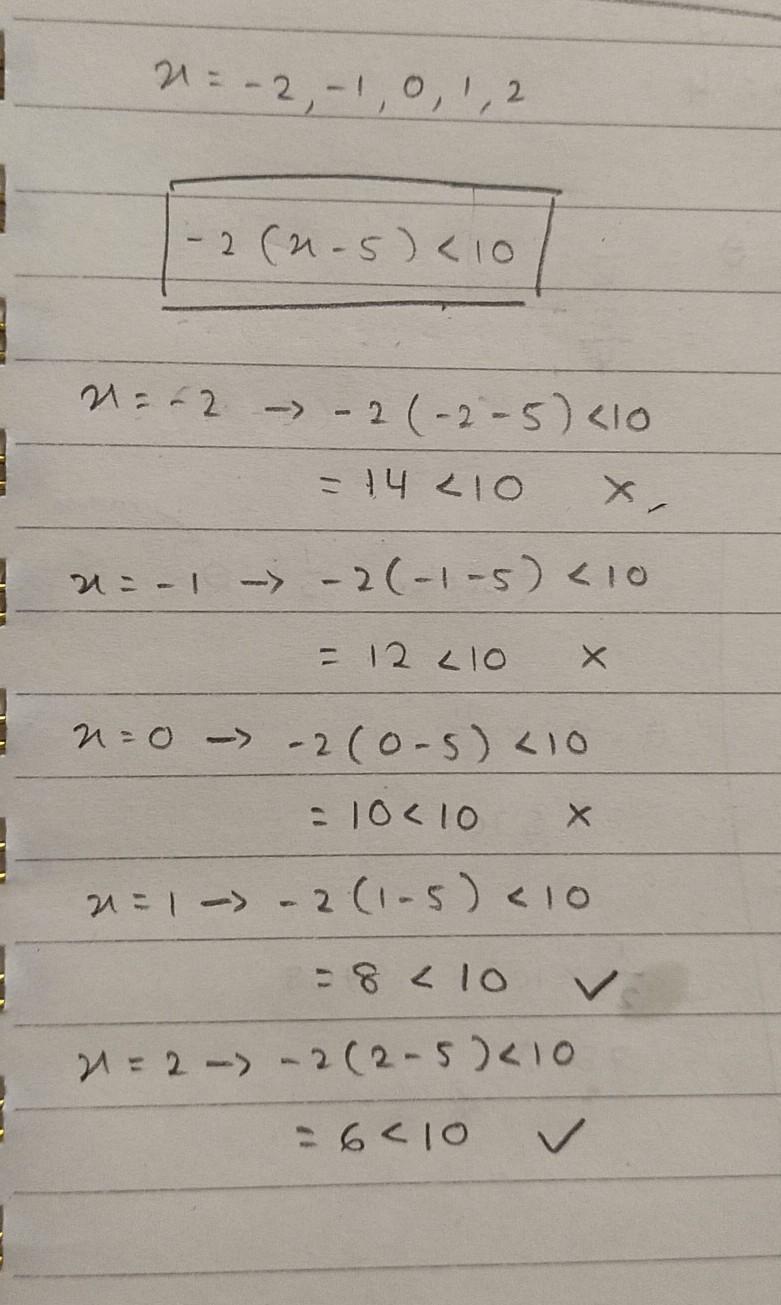 x = -2, -1, 0, 1, 2
-2(x-5) < 10
x = -2 → -2(-2-5) < 10
= 14 < 10 ×
x = -1 → -2(-1-5) < 10
= 12 < 10 ×
x = 0 → -2(0-5) < 10
= 10 < 10 ×
x = 1 → -2(1-5) < 10
= 8 < 10 ✓
x = 2 → -2(2-5) < 10
= 6 < 10 ✓